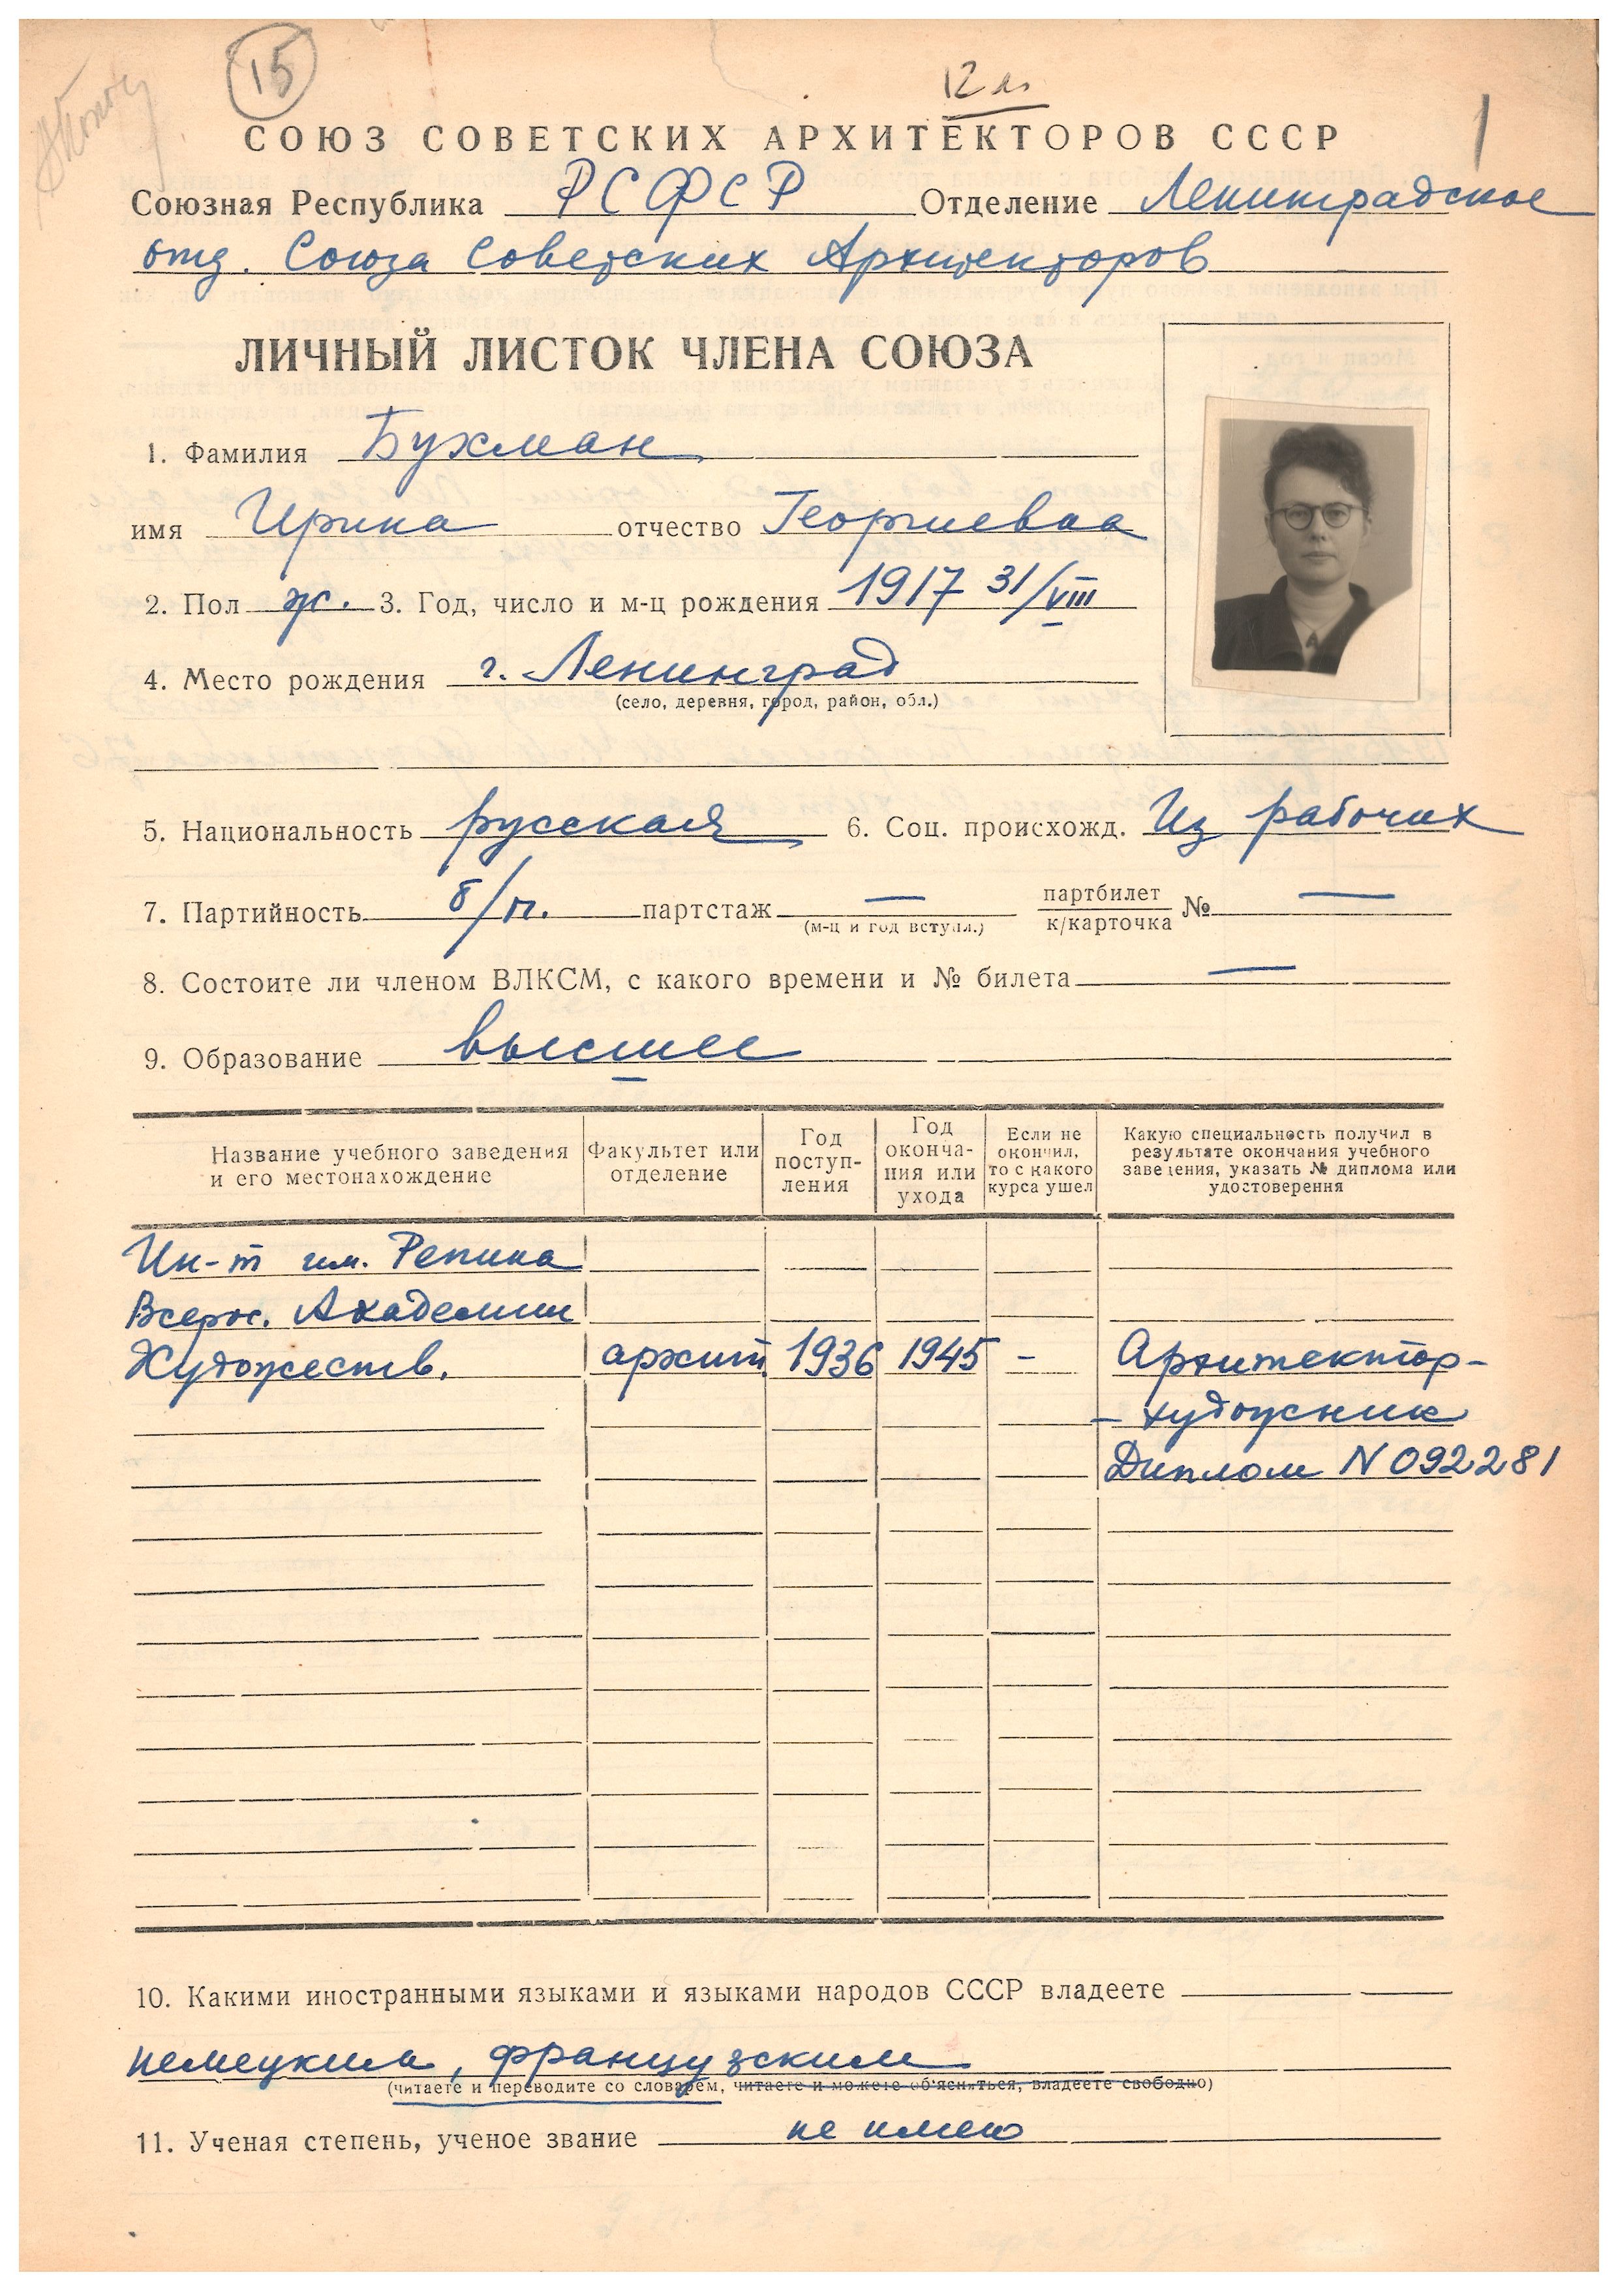 15
12 л
1
СОЮЗ СОВЕТСКИХ АРХИТЕКТОРОВ СССР
Союзная Республика РСФСР Отделение Ленинградское
отд. Союза Советских Архитекторов
ЛИЧНЫЙ ЛИСТОК ЧЛЕНА СОЮЗА
1. Фамилия Бухман
имя Ирина отчество Георгиевна
2. Пол ж. 3. Год, число и м-ц рождения 1917 31/VIII
4. Место рождения г. Ленинград
(село, деревня, город, район, обл.)
5. Национальность русская 6. Соц. происхожд. Из рабочих
7. Партийность б/п. партстаж — партбилет № —
(м-ц и год вступл.) к/карточка
8. Состоите ли членом ВЛКСМ, с какого времени и № билета —
9. Образование высшее
Название учебного заведения и его местонахождение
Факультет или отделение
Год поступ-
ления
Год
оконча-
ния или
ухода
Если не
окончил,
то с какого
курса ушел
Какую специальность получил в
результате окончания учебного
заведения, указать № диплома или
удостоверения
Ин-т им. Репина
Всерос. Академии
Художеств. архит. 1936 1945 - Архитектор-
- художник
Диплом N 092281
10. Какими иностранными языками и языками народов СССР владеете
немецким, французским
(читаете и переводите со словарем, читаете и можете об'ясняться, владеете свободно)
11. Ученая степень, ученое звание не имею